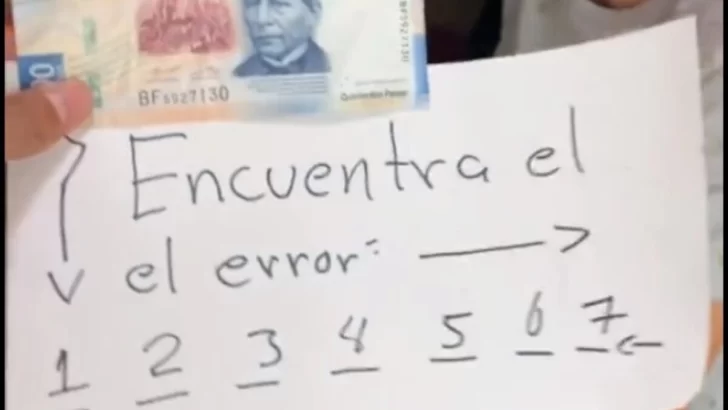 BF5927130
BF5927130
Quinientos Pesos
Encuentra el
el error:
1 2 3 4 5 6 7